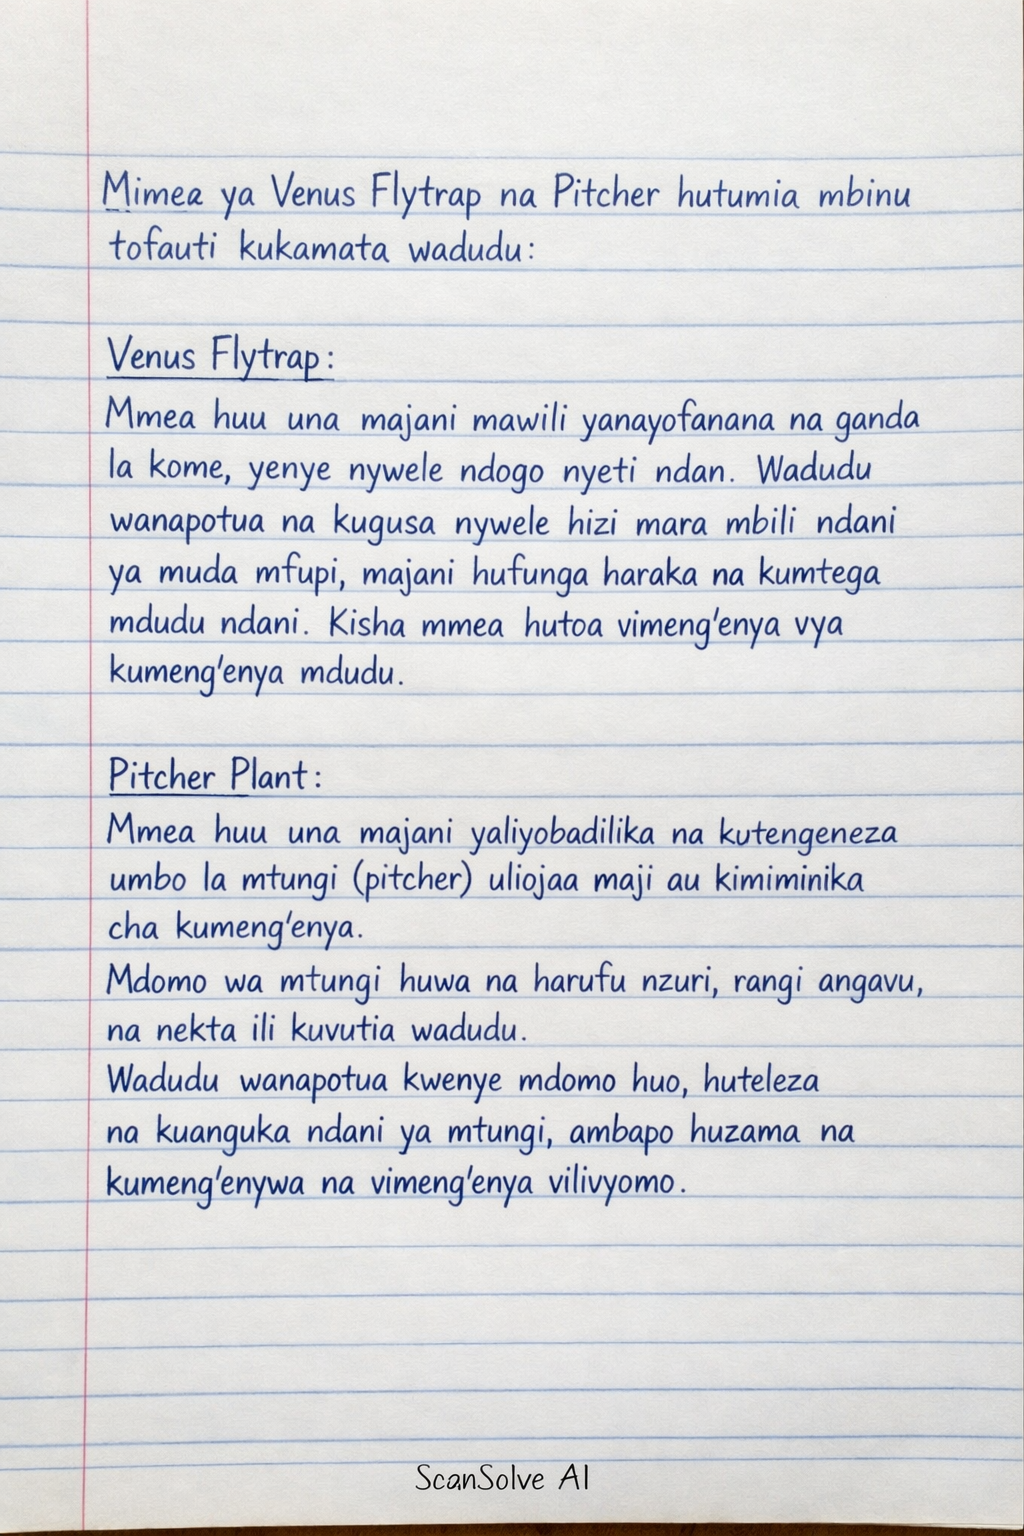 Mimea ya Venus Flytrap na Pitcher hutumia mbinu
tofauti kukamata wadudu:
Venus Flytrap:
Mmea huu una majani mawili yanayofanana na ganda
la kome, yenye nywele ndogo nyeti ndan. Wadudu
wanapotua na kugusa nywele hizi mara mbili ndani
ya muda mfupi, majani hufunga haraka na kumtega
mdudu ndani. Kisha mmea hutoa vimeng'enya vya
kumeng'enya mdudu.
Pitcher Plant:
Mmea huu una majani yaliyobadilika na kutengeneza
umbo la mtungi (pitcher) uliojaa maji au kimiminika
cha kumeng'enya.
Mdomo wa mtungi huwa na harufu nzuri, rangi angavu,
na nekta ili kuvutia wadudu.
Wadudu wanapotua kwenye mdomo huo, huteleza
na kuanguka ndani ya mtungi, ambapo huzama na
kumeng'enywa na vimeng'enya vilivyomo.
ScanSolve AI